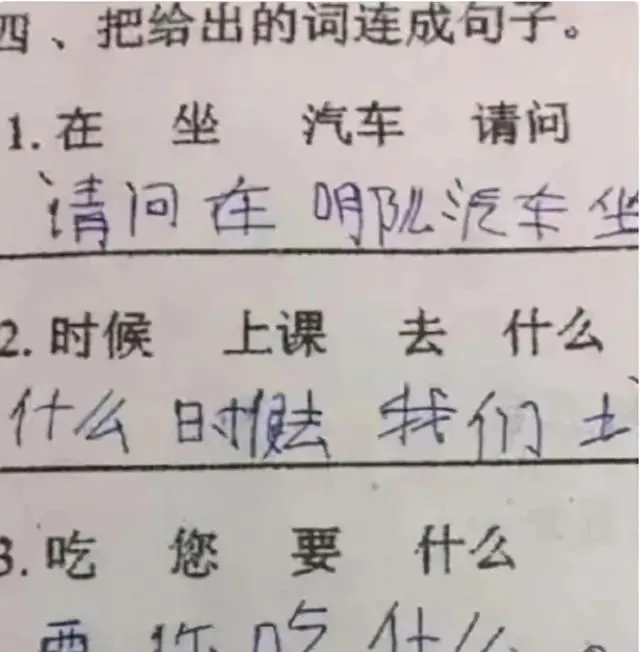 四、把给出的词连成句子。
1. 在 坐 汽车 请问
请问在 明队汽车坐
2. 时候 上课 去 什么
什么 时候去 我们 上
3. 吃 您 要 什么
要 你 吃 什么。